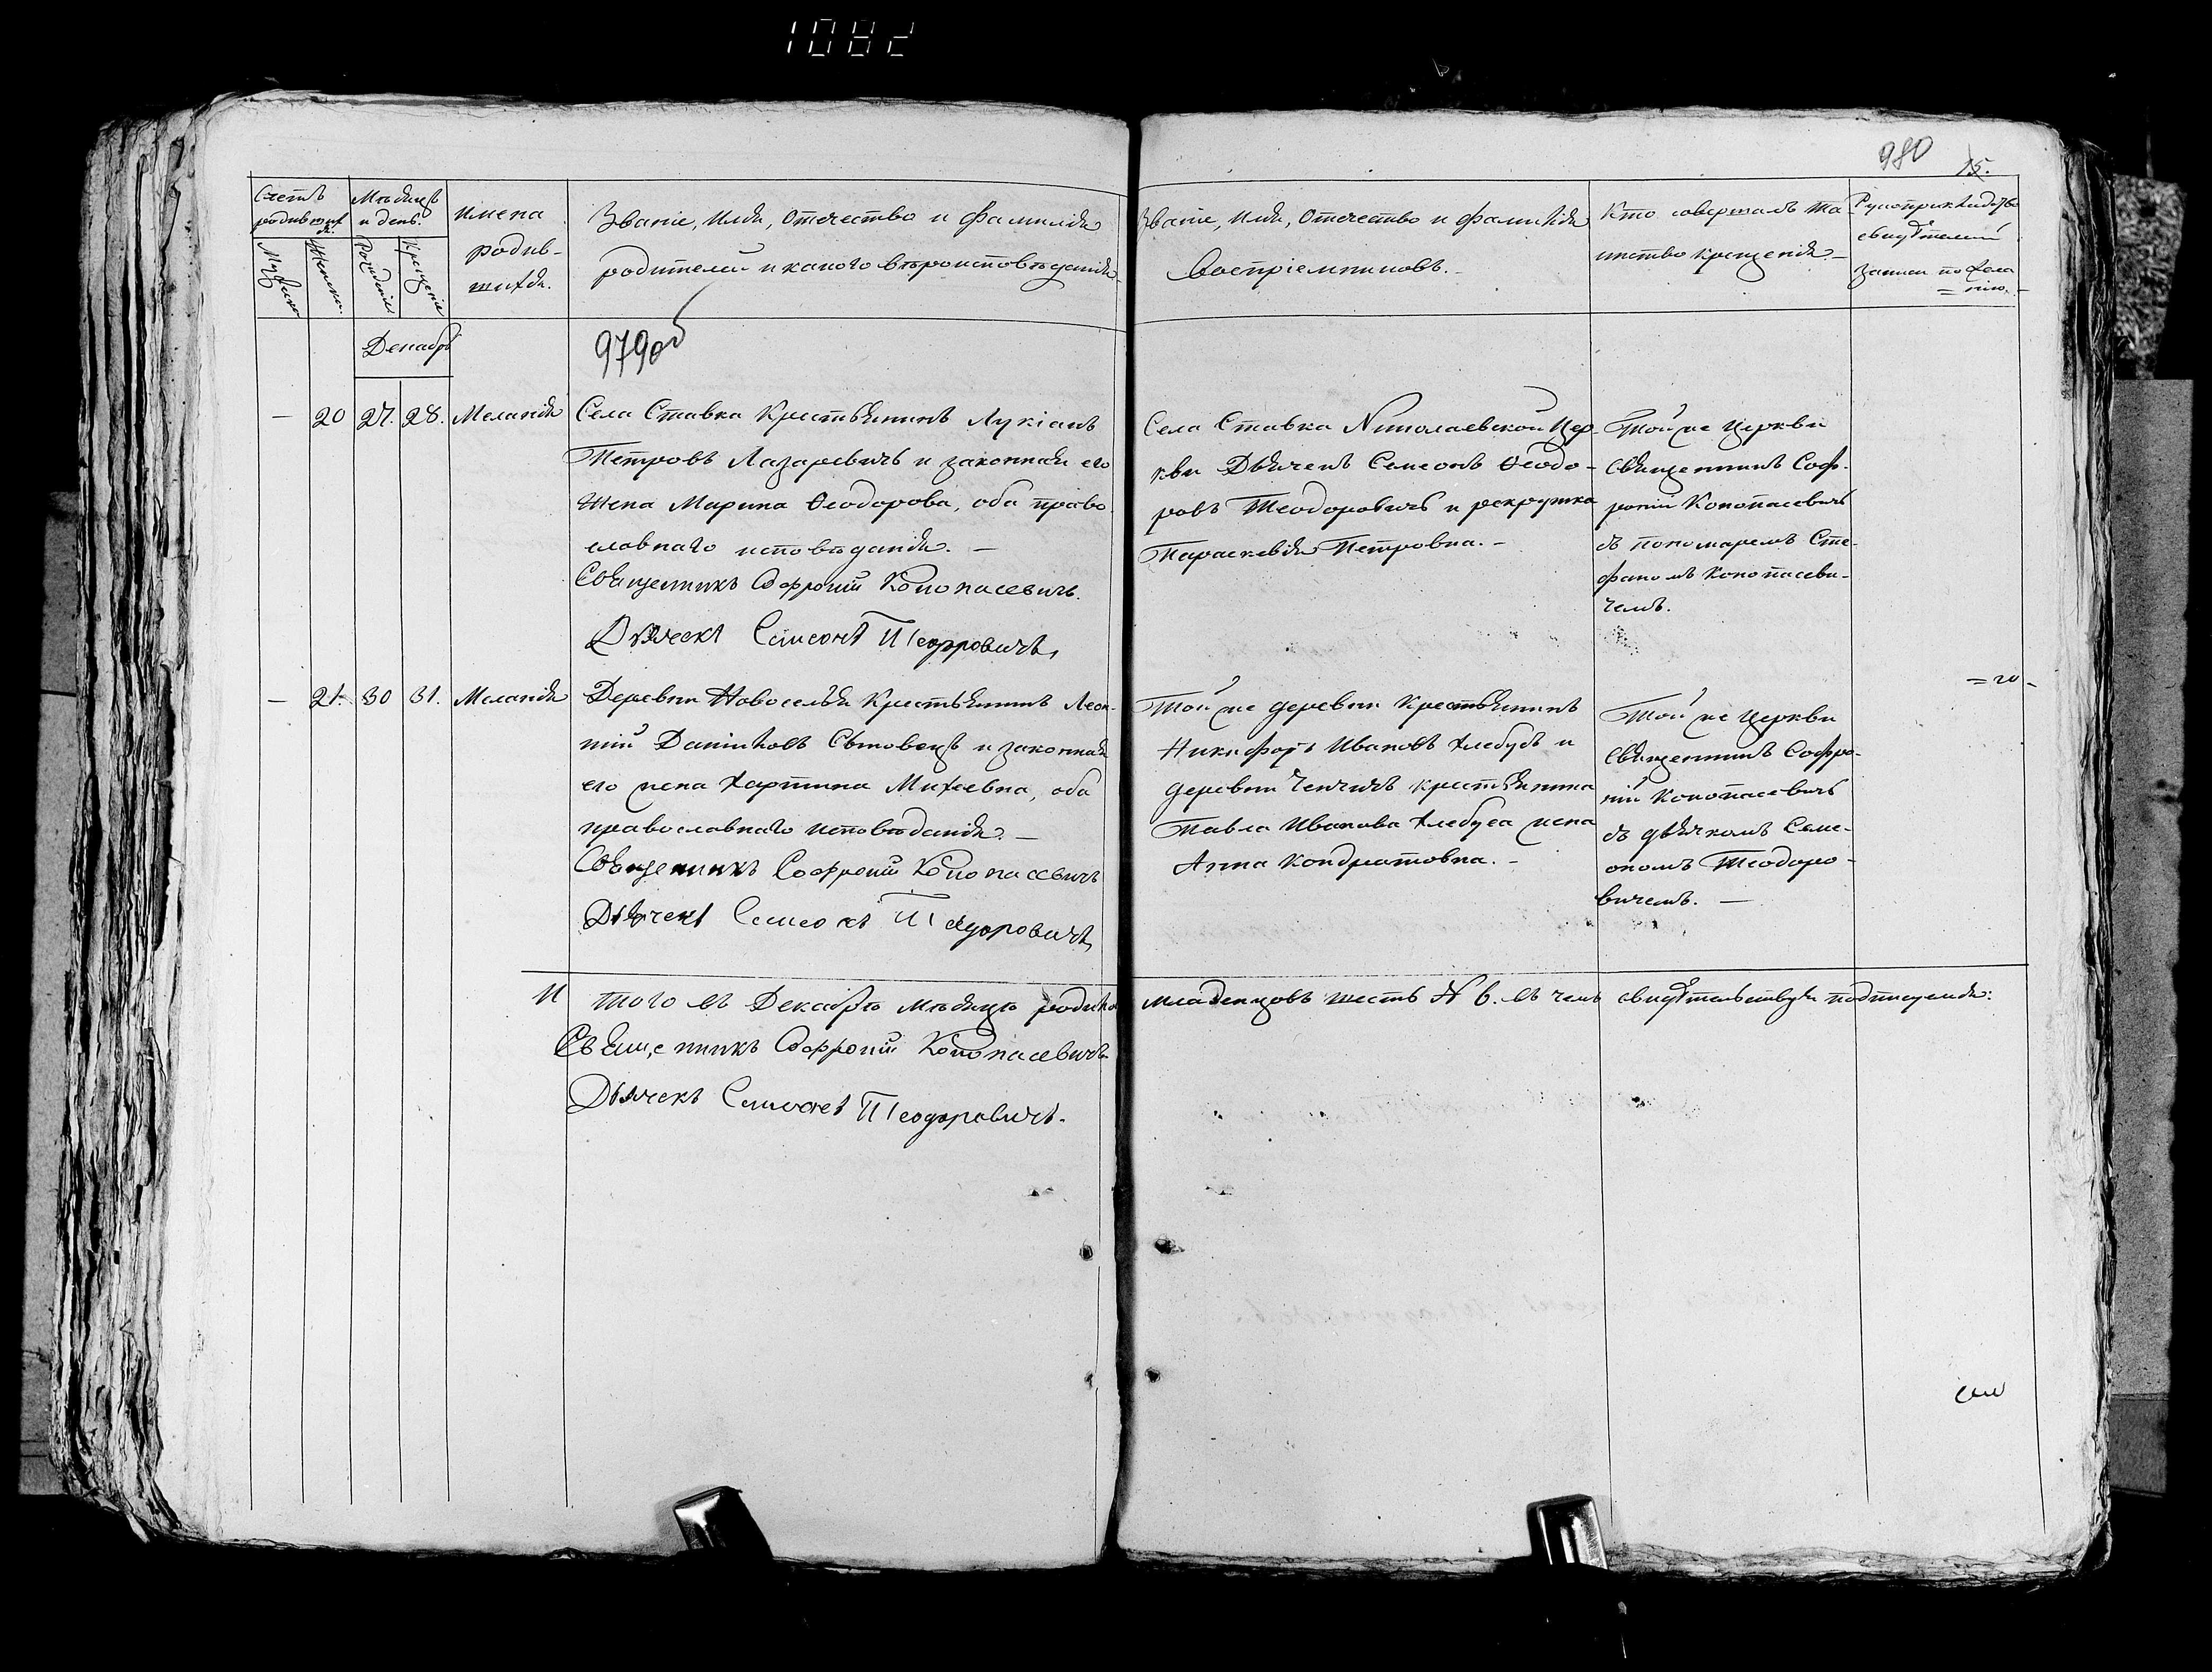 1082
980
15.
Счетъ родившихся.
Мужска
Женска.
Мѣсяцъ и день.
Рожденія
Крещенія
Имена родив-
шихся.
Званіе, Имя, Отечество и Фамилія
родителей и какого вѣроисповѣданія.
Званіе, Имя, Отечество и Фамилія
Воспріемниковъ.
Кто совершалъ та-
инство крещенія.
Рукоприкладство
свидѣтелей
записи по жела
=нію.
Декабрь
979 об
— 20 27. 28. Меланія
Села Ставка Крестьянинъ Лукіанъ
Петровъ Лазаревичъ и законная его
Жена Марина Ѳеодорова, оба право
славнаго исповѣданія. —
Священникъ Софроній Конопасевичъ.
Дьячекъ Симеонъ Теодоровичъ,
Села Ставка Николаевской Цер-
кви Дьячекъ Семеонъ Ѳеодо-
ровъ Теодоровичъ и рекрутка
Параскевія Петровна. -
Той же Церкви
Священникъ Соф-
роній Конопасевичъ
съ пономаремъ Сте-
фаномъ Конопасеви-
чемъ.
— 21. 30 31. Меланія
Деревни Новоселья Крестьянинъ Леон-
тій Даниловъ Сытовецъ и законная
его жена Харитина Михеевна, оба
православнаго исповѣданія. —
Священникъ Софроній Конопасевичъ
Дьячекъ Симеонъ Теодоровичъ,
Той же деревни Крестьянинъ
Никифоръ Ивановъ Хлебусъ и
деревни Ченчичъ крестьянина
Павла Иванова Хлебуса жена
Анна Кондратовна. -
Той же Церкви
Священникъ Софро-
ній Конопасевичъ
съ дьячкомъ Семе-
ономъ Теодоро-
вичемъ. —
И того въ Декабрѣ мѣсяцѣ родило младенцовъ шесть № 6. въ чемъ свидѣтельствуя подписуемся:
Священникъ Софроній Конопасевичъ
Дьячекъ Симеонъ Теодоровичъ.